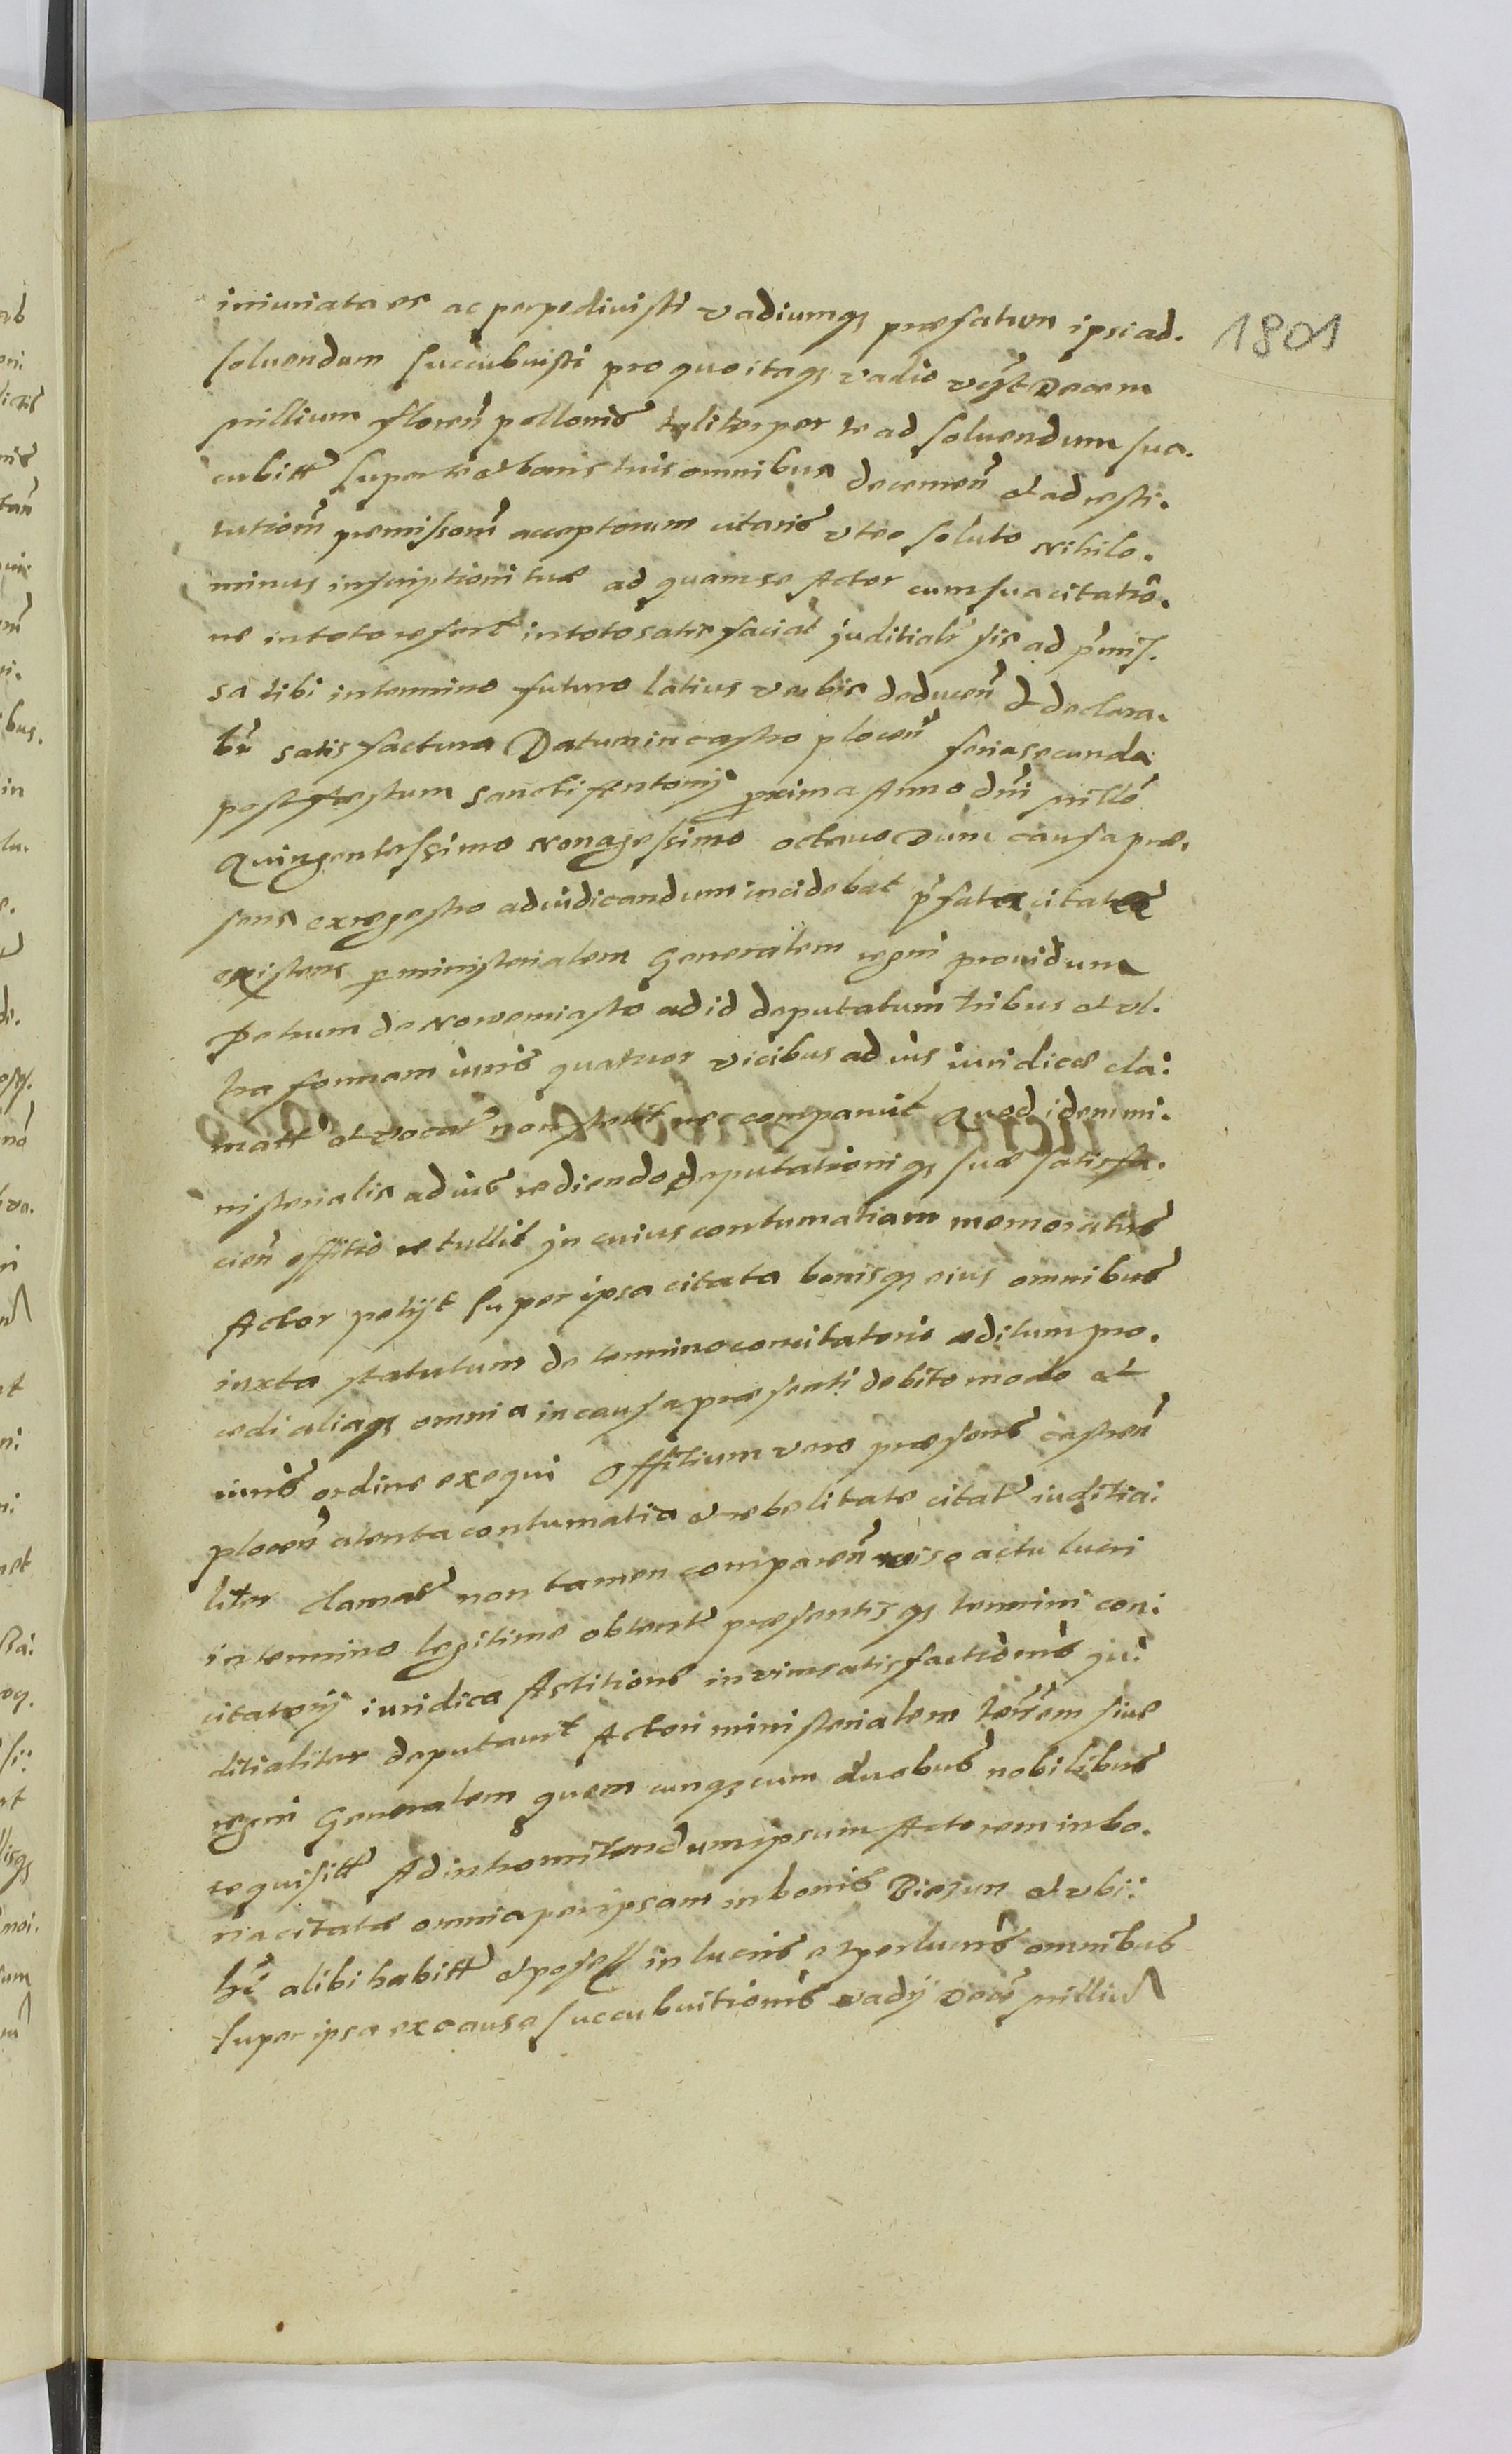 iniuriata es ac perpedivisti vadiumq3 præfatum ipsi ad.
1801
soluendum succubuisti pro quo itaq3 vadio vt pt Decem
millium floren pollonis taliter per te ad soluendum suc.
cubitt super te et bonis tuis omnibus decernen et ad resti.
tutionem premissorum acceptorum citaris vt eo soluto nihilo.
minus inscriptioni tuæ ad quam se Actor cum sua citatio.
ne in toto refert in toto satisfacias juditialr sis ad pmis.
sa tibi in termino futuro latius verbis deducen et declara.
bn satisfactura Datum in castro plocen feria secunda
post festum sancti Antonij proxima Anno dni millo
Quingentessimo nonagessimo octauo Dum causa præ.
sens ex regestro adiudicandum incidebat pfata citata
existens p ministerialem Generalem regni prouidum
Petrum de Nowemiasto ad id deputatum tribus et vl.
tra formam iuris quatuor vicibus ad ius iuridice cla:
matt et vocat non stetit nec comparuit Quod idem mi.
nisterialis ad ius rediendo deputationiq3 suæ satisfa.
cien offitio retullit jn cuius contumatiam memoratus
Actor petijt super ipsa citata bonisq3 eius omnibus
iuxta statutum de termino concitatorio æditum pro.
cedi aliaq3 omnia in causa præsenti debito modo et
iuris ordine exequi Offitium vero præsens castren
plocen atenta contumatia et rebelitate citat iuditia:
liter clamat non tamen comparen viso actu lucri
in termino legitime obtent præsentisq3 termini con:
citatorij iuridica Astitione in vim satisfactionis ju:
ditialiter deputauit Actori ministerialem terrem siue
regni Generalem quem cunq3 cum duobus nobilibus
requisitt Ad intromittendum ipsum Actorem in bo.
na citatæ omnia per ipsam in bonis Biezun et vbi:
bt alibi habitt et possess in lucris et perlucris omnibus
super ipsa ex causa succubuitionis vadij Decem milliu